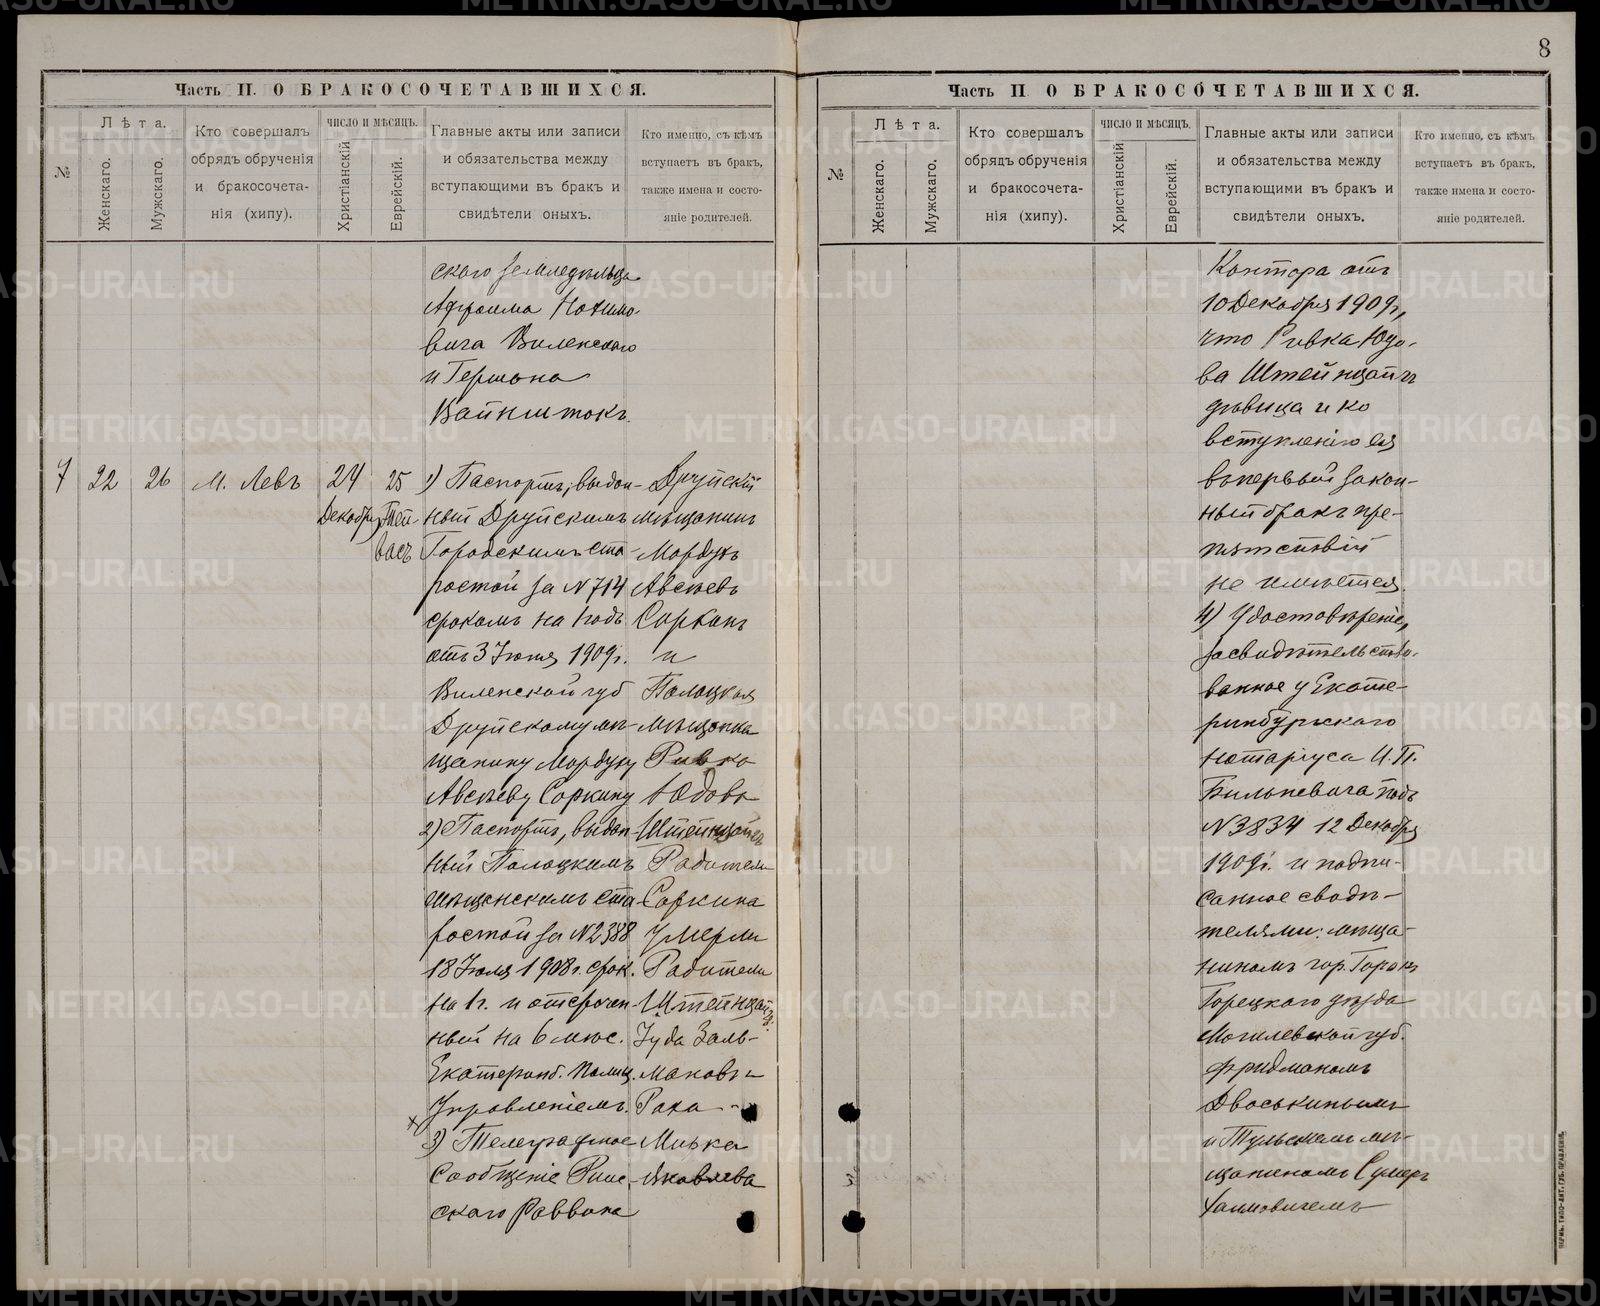 8
Часть II. О БРАКОСОЧЕТАВШИХСЯ.
№
Лѣта.
Женскаго.
Мужскаго.
Кто совершалъ
обрядъ обрученія
и бракосочета-
нія (хипу).
ЧИСЛО И МѢСЯЦЪ.
Христіанскій
Еврейскій.
Главные акты или записи
и обязательства между
вступающими въ бракъ и
свидѣтели оныхъ.
Кто именно, съ кѣмъ
вступаетъ въ бракъ,
также имена и состо-
яніе родителей.
скаго земледѣльца
Афроима Нохимо-
вича Виленскаго
и Гершона
Вайншток.
7
22
26
М. Левъ
24
Декабря
25
Тей-
васъ
1) Паспортъ, выдан-
ный Друйскимъ
Городскимъ ста-
ростой за № 714
срокомъ на 1 годъ
отъ 3 Іюля 1909 г.
Виленской губ
Друйскому мѣ-
щанину Мордуху
Авсѣеву Соркину
2) Паспортъ, выдан-
ный Полоцкимъ
мѣщанскимъ ста-
ростой за № 2388
18 Іюля 1908 г. срок.
на 1 г. и отсрочен-
ный на 6 мѣс.
Екатеринб. Полиц.
Управленіемъ.
3) Телеграфное
Сообщеніе Риж-
скаго Раввина
Друйскій
мѣщанинъ
Мордухъ
Авсѣевъ
Соркинъ
и
Полоцкая
мѣщанка
Ривка
Юдова
Штейнцайгъ
Родители
Соркина
умерли
Родители
Штейнцайгъ:
Іуда Заль-
мановъ и
Раха-
Мирка
Яковлева
Часть II О БРАКОСОЧЕТАВШИХСЯ.
№
Лѣта.
Женскаго.
Мужскаго.
Кто совершалъ
обрядъ обрученія
и бракосочета-
нія (хипу).
ЧИСЛО И МѢСЯЦЪ.
Христіанскій
Еврейскій.
Главные акты или записи
и обязательства между
вступающими въ бракъ и
свидѣтели оныхъ.
Кто именно, съ кѣмъ
вступаетъ въ бракъ,
также имена и состо-
яніе родителей.
Контора отъ
10 Декабря 1909 г.,
что Ривка Юдо-
ва Штейнцайгъ
дѣвица и ко
вступленію ея
въ первый закон-
ный бракъ пре-
пятствій
не имѣется.
4) Удостовѣреніе,
засвидѣтельство-
ванное у Екате-
ринбургскаго
нотаріуса И. П.
подъ
№ 3834 12 Декабря
1909 г. и подпи-
санное свидѣ-
телями: мѣща-
ниномъ гор. Горокъ
Горецкаго уѣзда
Могилевской губ.
Фридманомъ
Двоскинымъ
и Тульскимъ мѣ-
щаниномъ
Хаимовичемъ
ПЕРМЬ. ТИПО-ЛИТ. ГУБ. ПРАВЛЕНІЯ.
METRIKI.GASO-URAL.RU